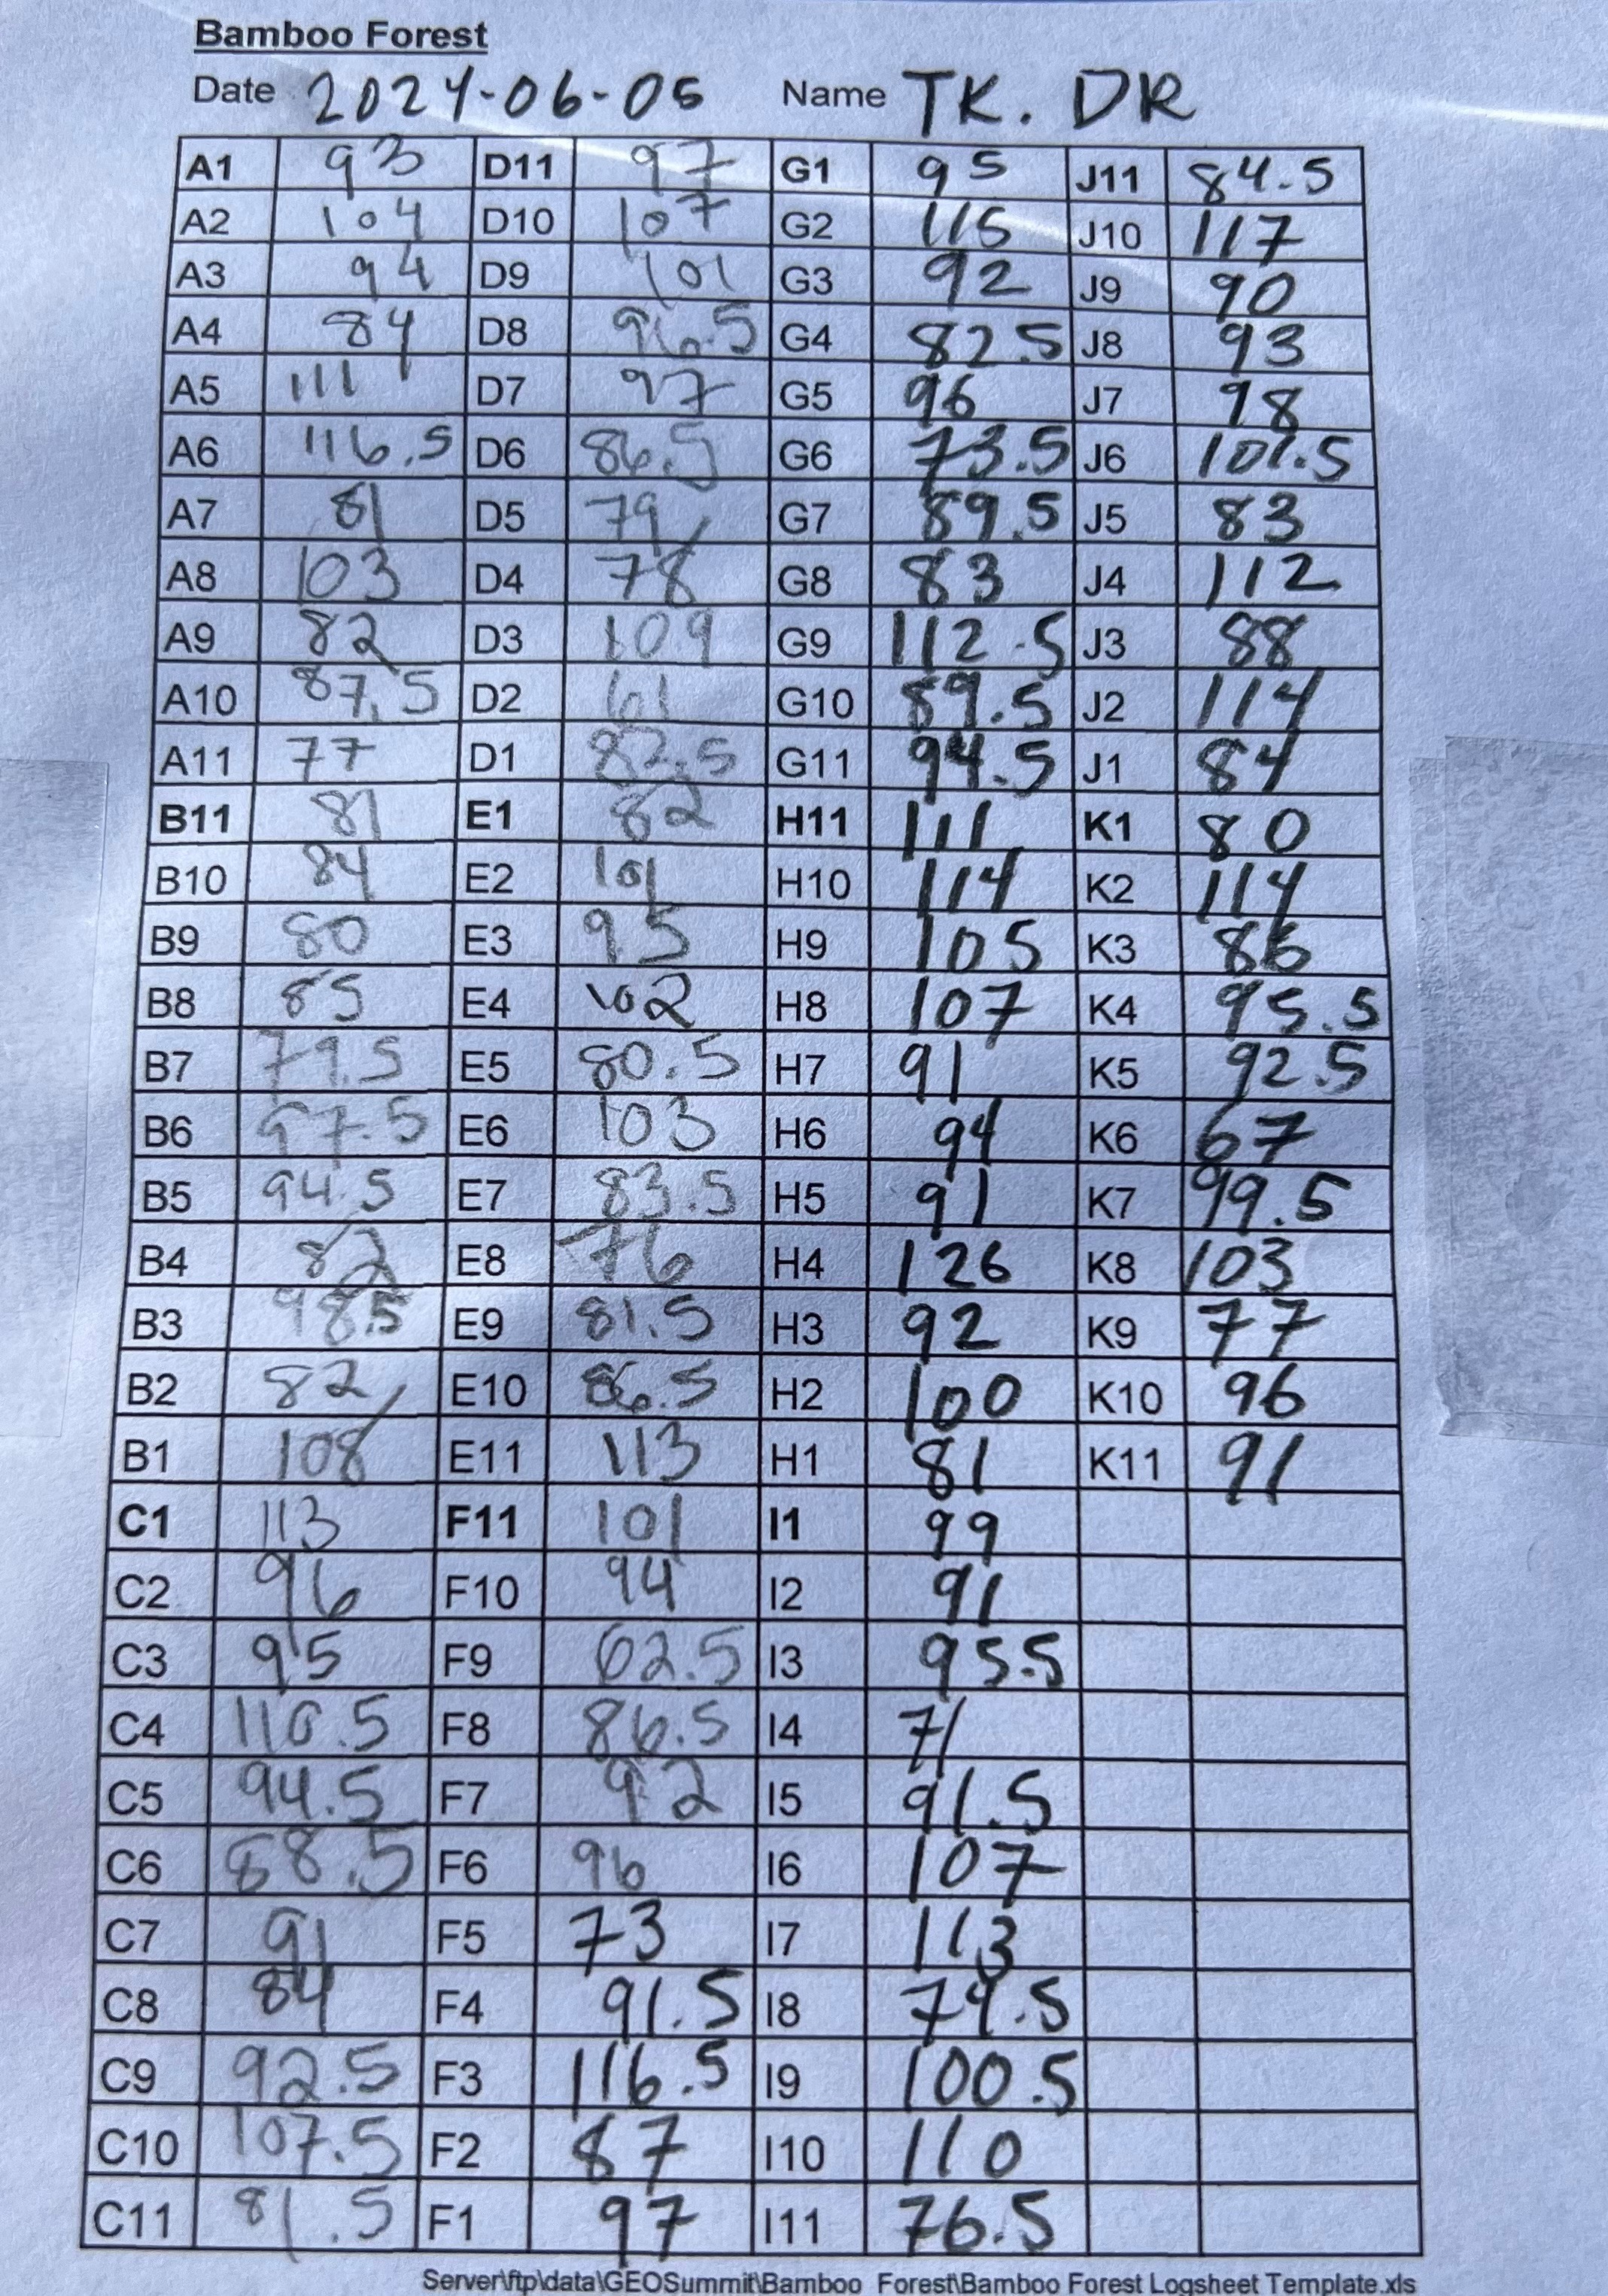 Bamboo Forest
Date 2024-06-05 Name TK. DR
A1 93 D11 97 G1 95 J11 84.5
A2 104 D10 107 G2 115 J10 117
A3 94 D9 101 G3 92 J9 90
A4 84 D8 96.5 G4 82.5 J8 93
A5 111 D7 97 G5 96 J7 98
A6 116.5 D6 86.5 G6 73.5 J6 101.5
A7 81 D5 79 G7 89.5 J5 83
A8 103 D4 78 G8 83 J4 112
A9 82 D3 109 G9 112.5 J3 88
A10 87.5 D2 61 G10 89.5 J2 114
A11 77 D1 82.5 G11 94.5 J1 84
B11 81 E1 82 H11 111 K1 80
B10 84 E2 101 H10 114 K2 114
B9 80 E3 95 H9 105 K3 86
B8 85 E4 102 H8 107 K4 95.5
B7 79.5 E5 80.5 H7 91 K5 92.5
B6 97.5 E6 103 H6 94 K6 67
B5 94.5 E7 83.5 H5 91 K7 99.5
B4 82 E8 76 H4 126 K8 103
B3 98.5 E9 81.5 H3 92 K9 77
B2 82 E10 86.5 H2 100 K10 96
B1 108 E11 113 H1 81 K11 91
C1 113 F11 101 I1 99
C2 96 F10 94 I2 91
C3 95 F9 62.5 I3 95.5
C4 110.5 F8 86.5 I4 71
C5 94.5 F7 92 I5 91.5
C6 F6 96 I6 107
C7 91 F5 73 I7 113
C8 84 F4 91.5 I8
C9 92.5 F3 116.5 I9 100.5
C10 107.5 F2 87 I10 110
C11 81.5 F1 97 I11 76.5
Server\ftp\data\GEOSummit\Bamboo Forest\Bamboo Forest Logsheet Template.xls